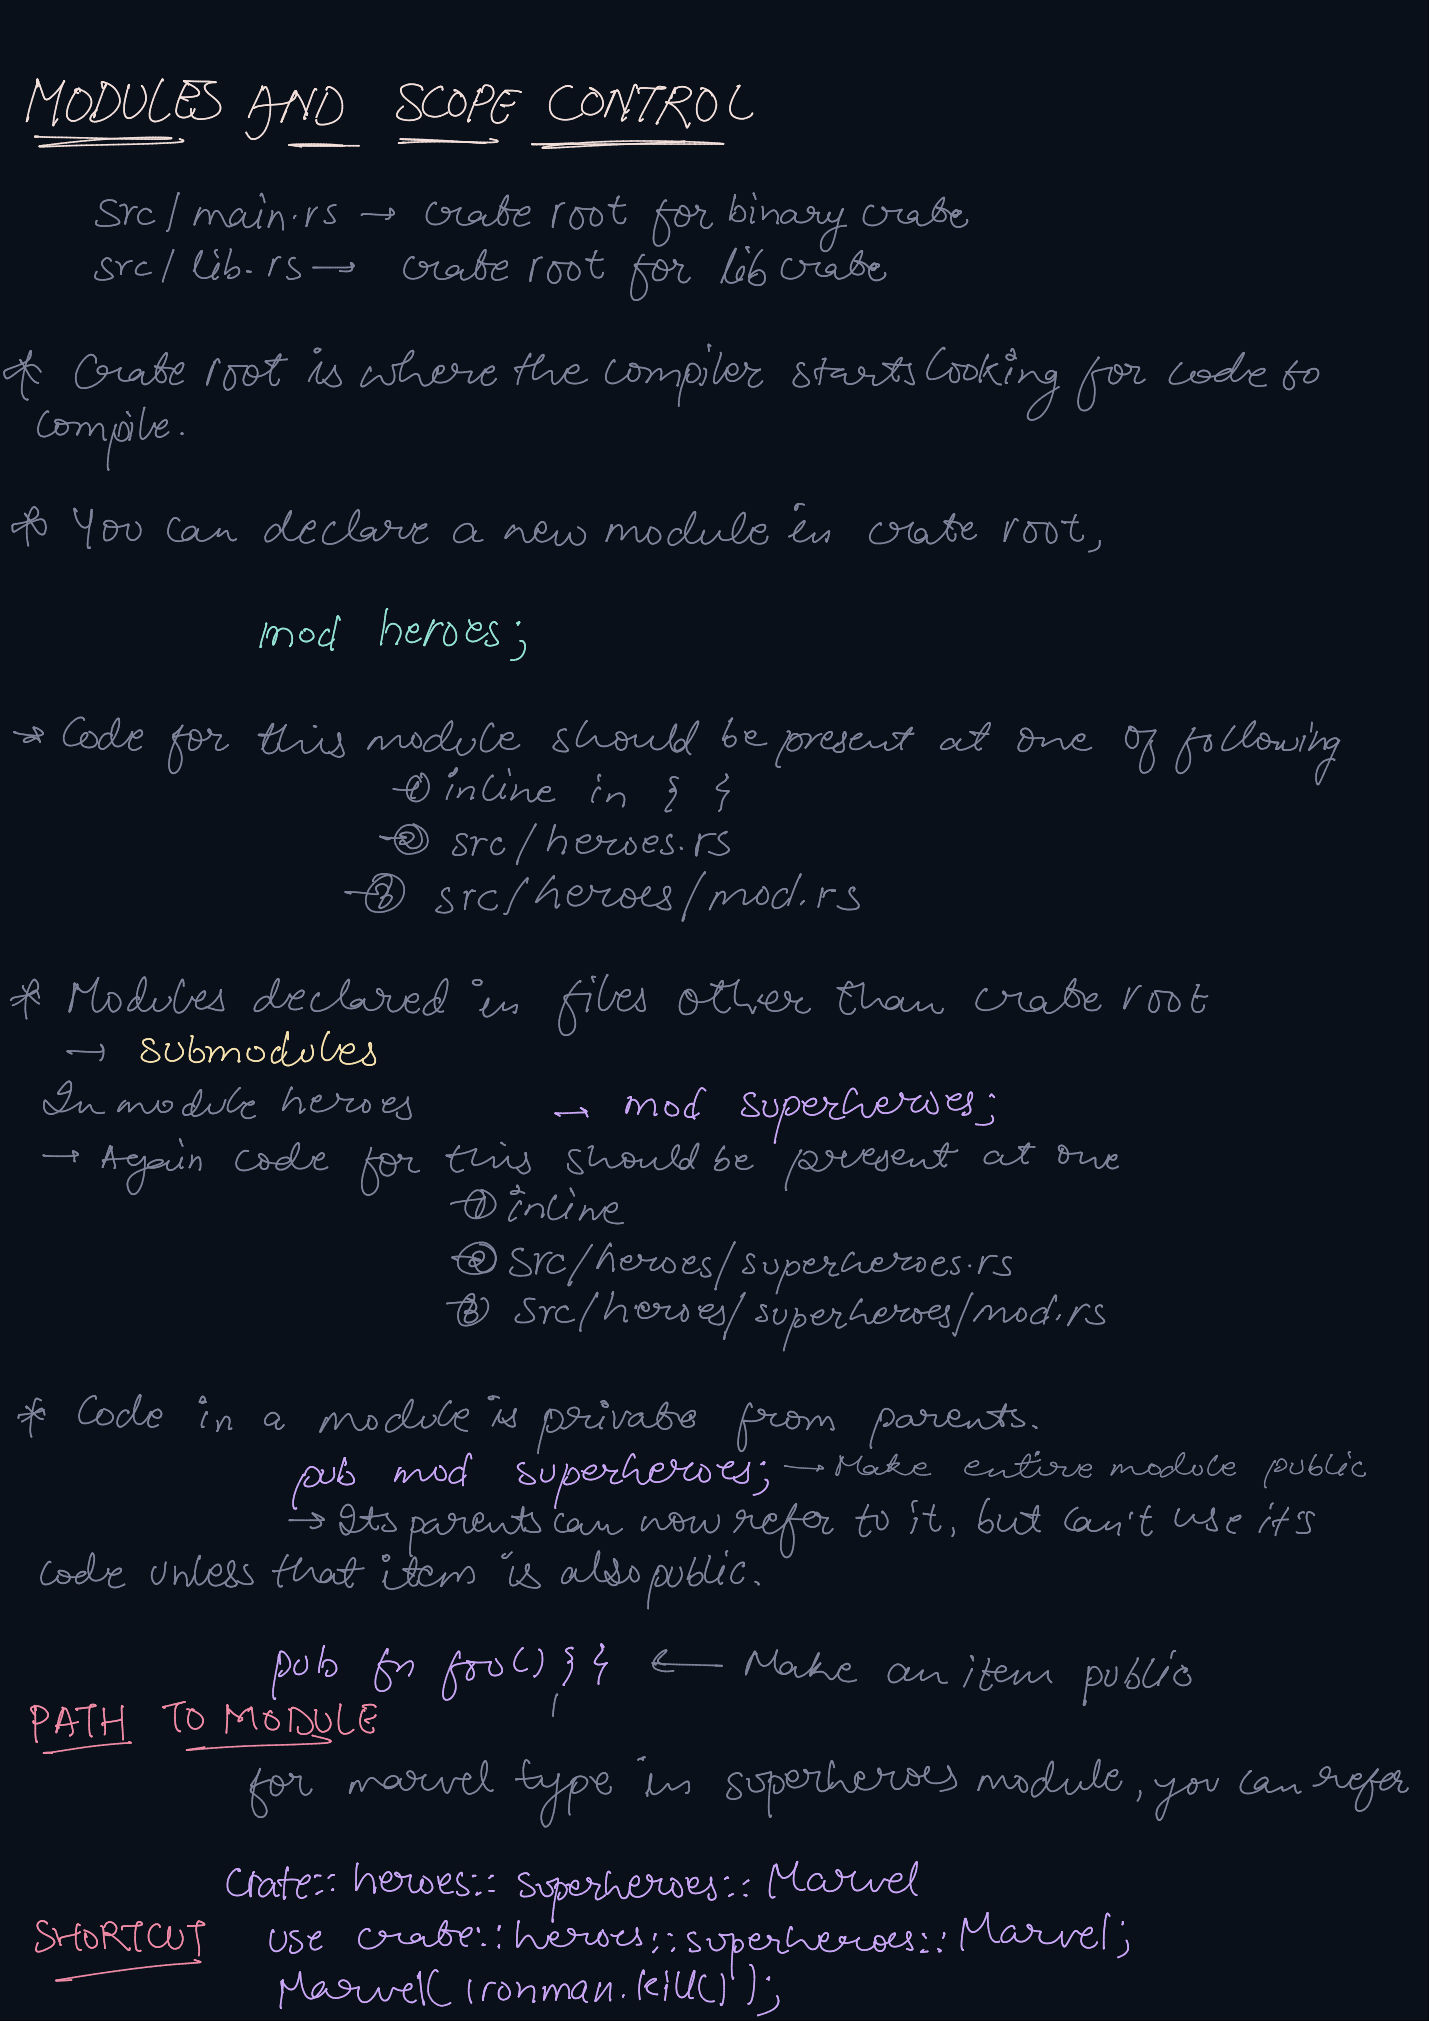 MODULES AND SCOPE CONTROL
src/main.rs → crate root for binary crate
src/lib.rs → crate root for lib crate
* Crate root is where the compiler starts looking for code to
compile.
* You can declare a new module in crate root,
mod heroes;
→ Code for this module should be present at one of following
→ ① inline in { }
→ ② src/heroes.rs
→ ③ src/heroes/mod.rs
* Modules declared in files other than crate root
→ submodules
In module heroes → mod superheroes;
→ Again code for this should be present at one
→ ① inline
→ ② src/heroes/superheroes.rs
→ ③ src/heroes/superheroes/mod.rs
* Code in a module is private from parents.
pub mod superheroes; → Make entire module public
→ Its parents can now refer to it, but can't use it's
code unless that item is also public.
pub fn foo() { } ← Make an item public
PATH TO MODULE
for marvel type in superheroes module, you can refer
crate:: heroes:: superheroes:: Marvel
SHORTCUT use crate::heroes::superheroes::Marvel;
Marvel(ironman.kill());